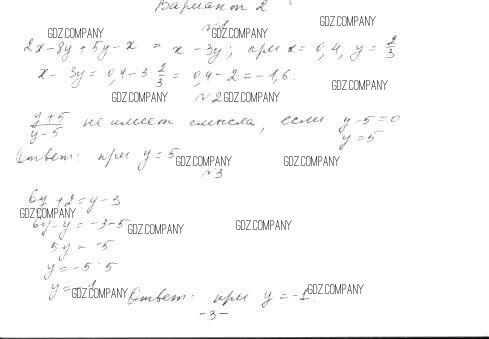 Вариант 2
GDZ.COMPANY
№1
GDZ.COMPANY GDZ.COMPANY
2x - 8y + 5y - x = x - 3y; при x = 0,4, y = 2/3
x - 3y = 0,4 - 3 · 2/3 = 0,4 - 2 = -1,6.
GDZ.COMPANY
№2
GDZ.COMPANY GDZ.COMPANY
y+5/y-5 не имеет смысла, если y - 5 = 0
y = 5
Ответ: при y = 5
GDZ.COMPANY GDZ.COMPANY
№3
6y + 2 = y - 3
GDZ.COMPANY
6y - y = -3 - 5
GDZ.COMPANY GDZ.COMPANY
5y = -5
y = -5 : 5
y = -1
GDZ.COMPANY
Ответ: при y = -1.
GDZ.COMPANY
-3-